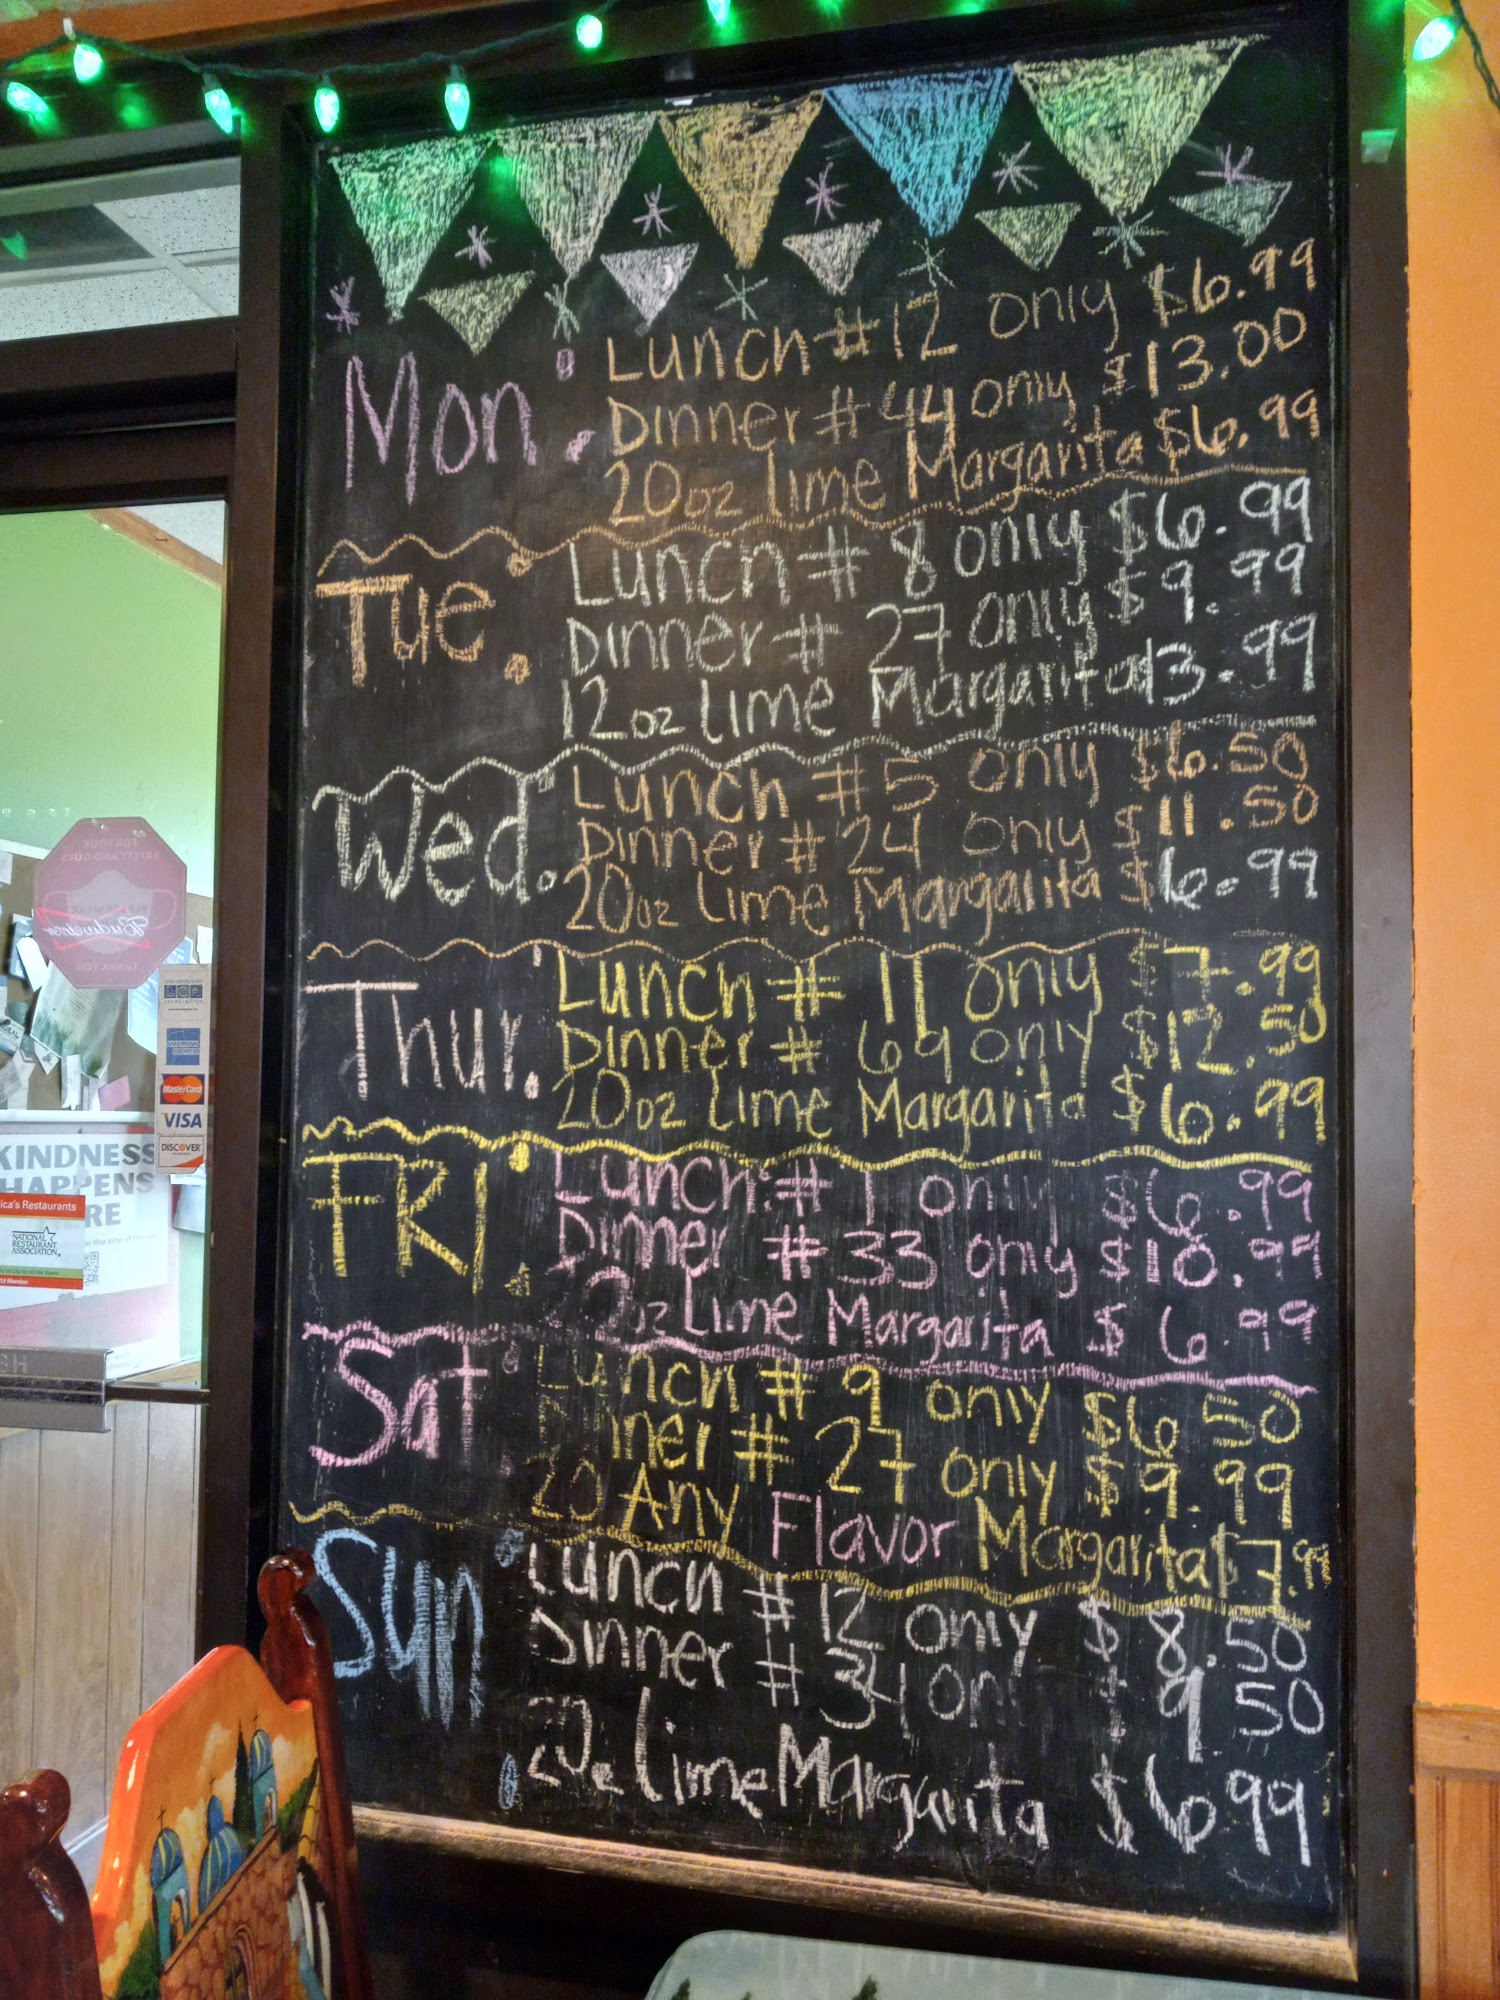 Mon:
Lunch #12 only $6.99
Dinner #44 only $13.00
20oz lime Margarita $6.99
Tue:
Lunch # 8 only $6.99
Dinner # 27 only $9.99
12oz lime Margarita $3.99
Wed:
Lunch #5 only $6.50
Dinner # 24 only $11.50
20oz lime Margarita $6.99
Thur:
Lunch # 11 only $7.99
Dinner # 69 only $12.50
20oz lime Margarita $6.99
FRI:
Lunch # 1 only $6.99
Dinner # 33 only $10.99
20oz lime Margarita $6.99
Sat:
Lunch # 9 only $6.50
Dinner # 27 only $9.99
20 Any Flavor Margarita $7.99
Sun:
Lunch #12 only $8.50
Dinner # 34 only $9.50
20z lime Margarita $6.99
FOR YOUR
SAFETY AND OURS
Budweiser
THANK YOU
MasterCard
VISA
DISCOVER
KINDNESS
HAPPENS
RE
ica's Restaurants
NATIONAL
RESTAURANT
ASSOCIATION